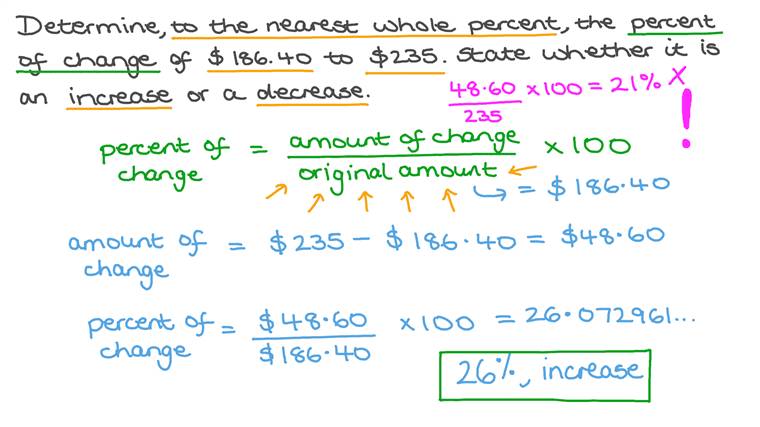 Determine, to the nearest whole percent, the percent
of change of $186.40 to $235. State whether it is
an increase or a decrease.
48.60/235 × 100 = 21% ×
!
percent of change = amount of change/original amount × 100
= $186.40
amount of change = $235 − $186.40 = $48.60
percent of change = $48.60/$186.40 × 100 = 26.072961...
26%, increase